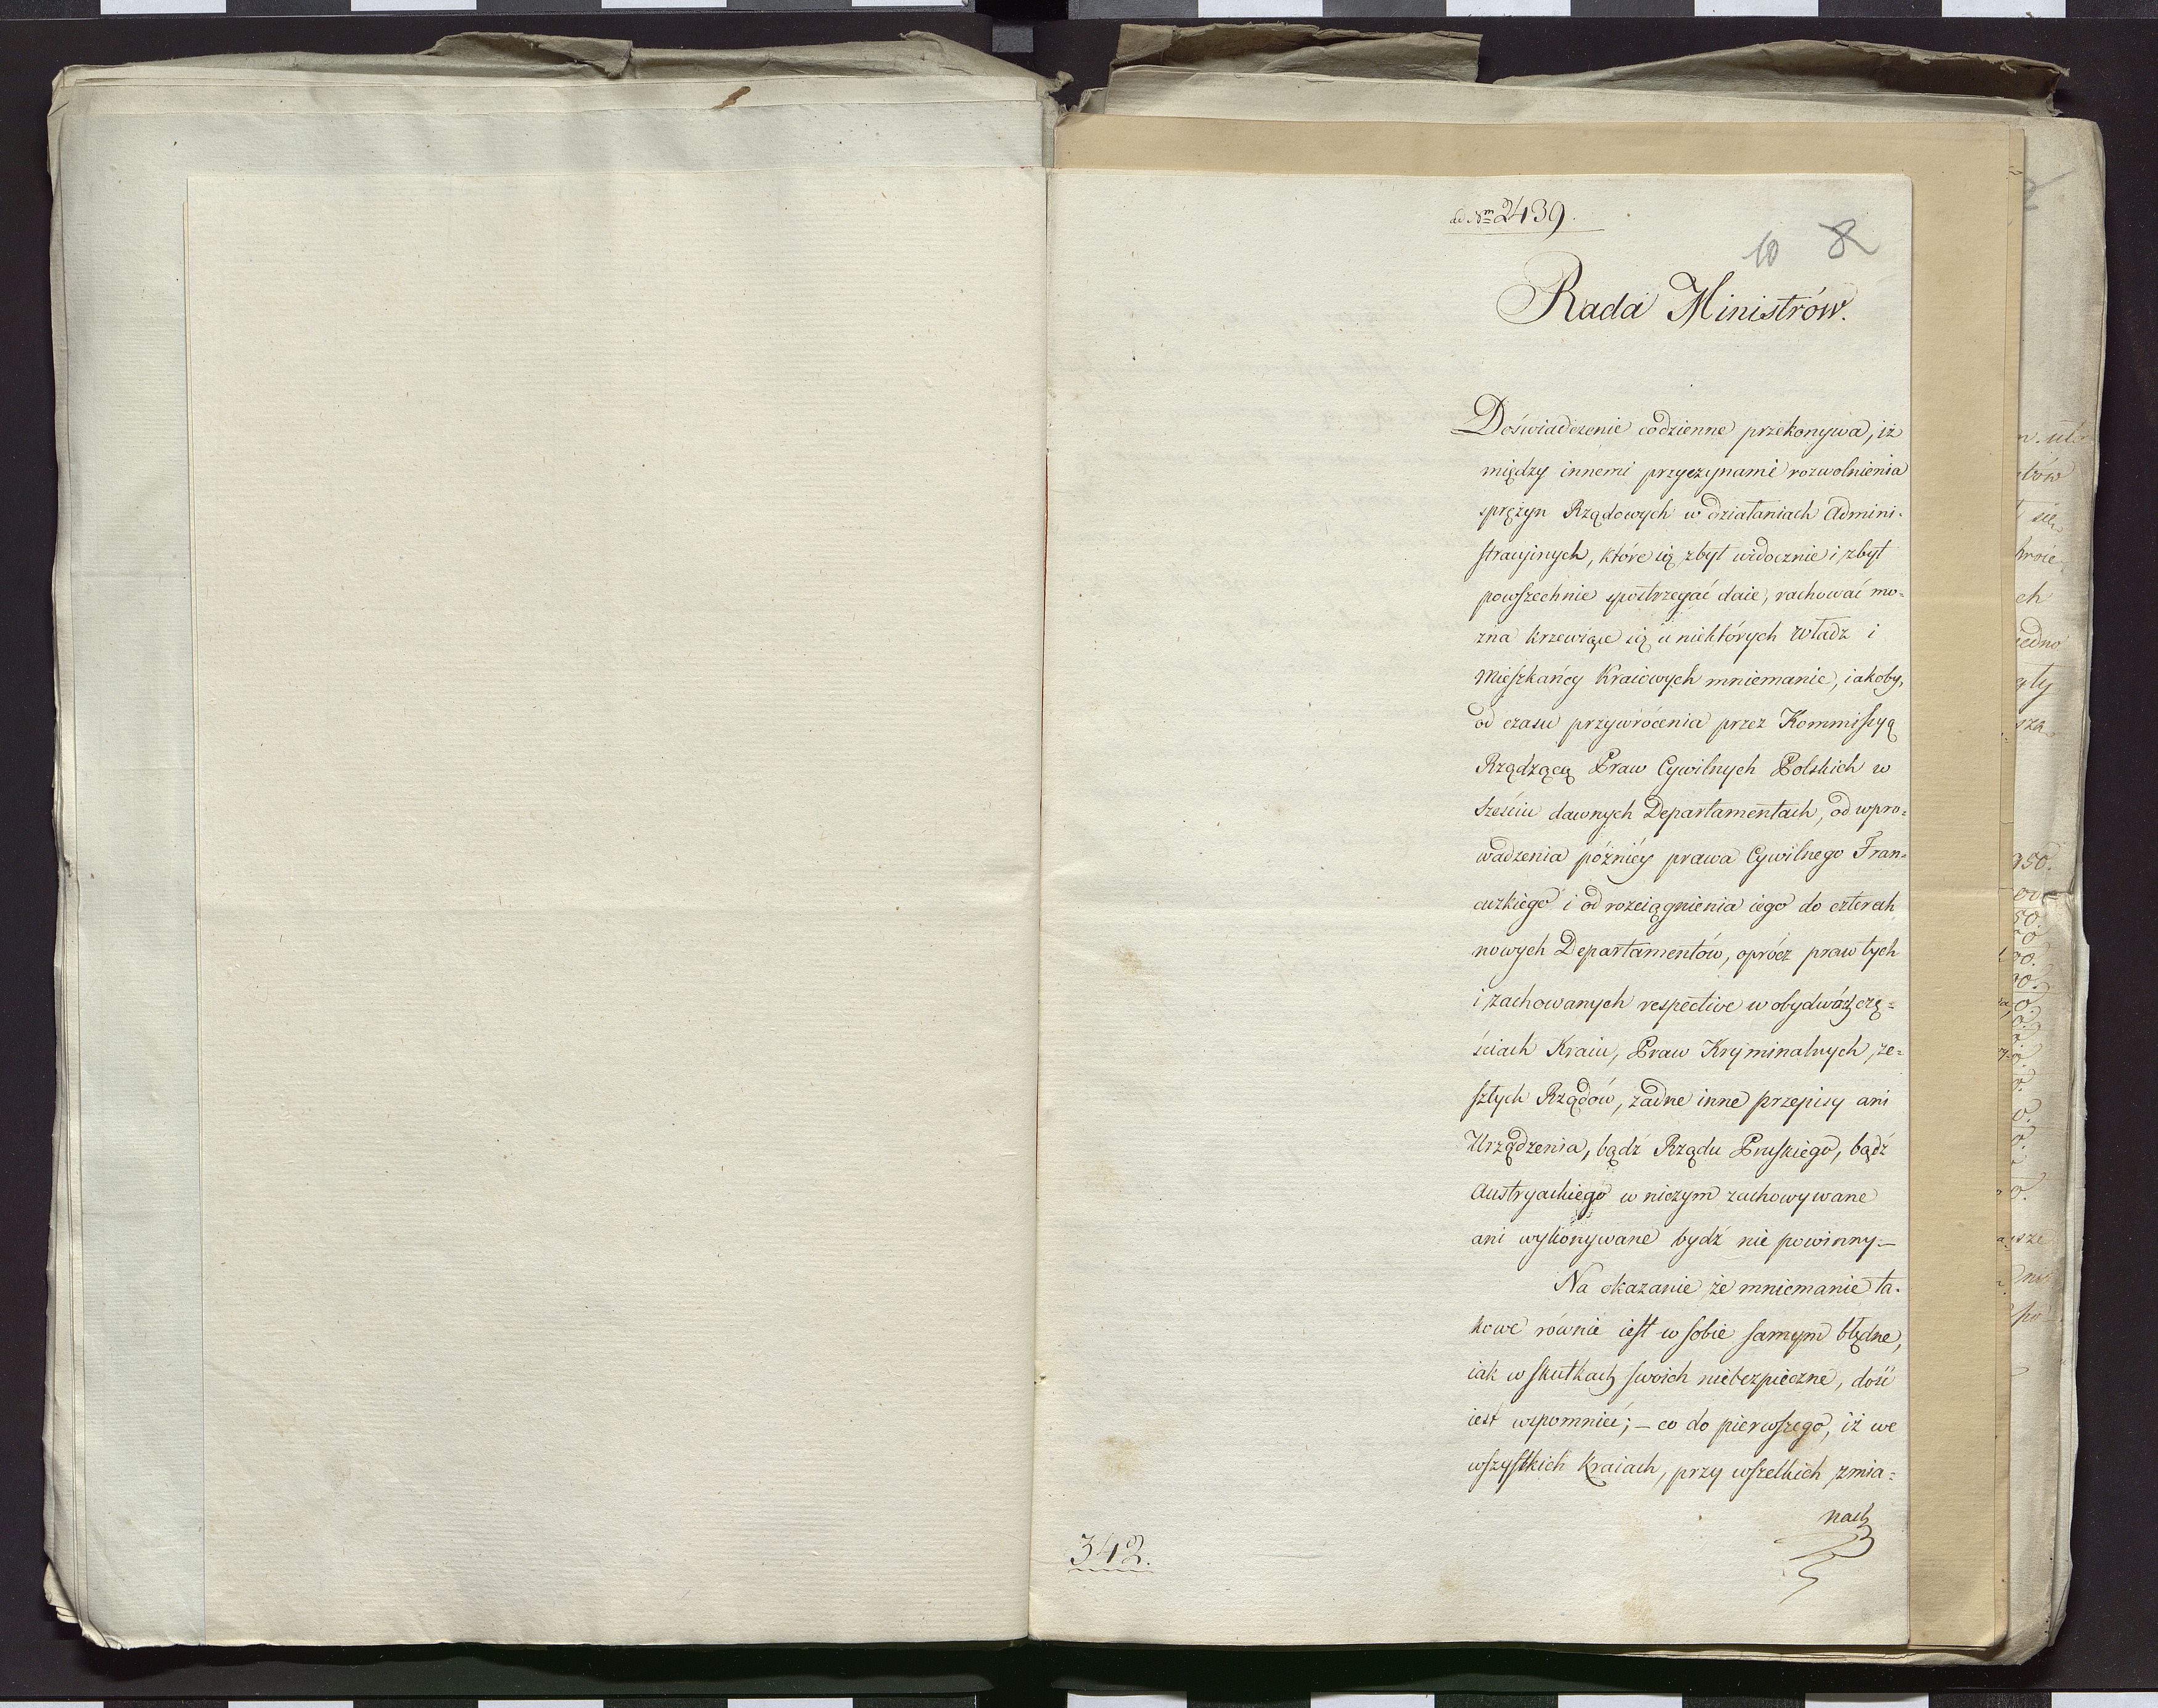 ad Nm 2439.
10 8
Rada Ministrów.
Doświadczenie codzienne przekonywa, iż
między innemi przyczynami rozwolnienia
sprężyn Rządowych w działaniach Admini-
stracyinych, które się zbyt widocznie i zbyt
powszechnie spostrzegać daie, rachować mo-
zna krzewiące się u niektórych Władz i
Mieszkańcy Kraiowych mniemanie, iakoby,
od czasu przywrócenia przez Kommissyą
Rządzącą Praw Cywilnych Polskich w
sześciu dawnych Departamentach, od wpro-
wadzenia późniéy prawa Cywilnego Fran-
cuzkiego i od rozciągnienia iego do czterech
nowych Departamentów, oprócz praw tych
i zachowanych respective w obydwóch czę-
ściach Kraiu, Praw Kryminalnych, ze-
szłych Rządów, żadne inne przepisy ani
Urządzenia, bądź Rządu Pruskiego, bądź
Austryackiego w niczym zachowywane
ani wykonywane bydź nie powinny.—
Na okazanie że mniemanie ta-
kowe równie iest w sobie samym błędne,
iak w skutkach swoich niebezpieczne, dość
iest wspomnieć; – co do pierwszego, iż we
wszystkich Kraiach, przy wszelkich zmia-
nach
342.